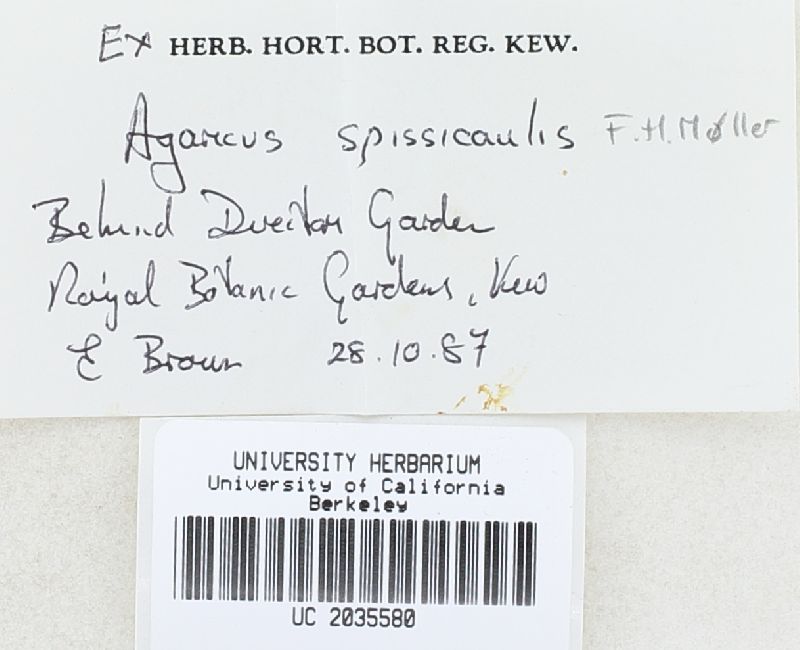 Ex HERB. HORT. BOT. REG. KEW.
Agaricus spissicaulis F.H.Møller
Behind Director Garden
Royal Botanic Gardens, Kew
E Brown 28.10.87
UNIVERSITY HERBARIUM
University of California
Berkeley
UC 2035580